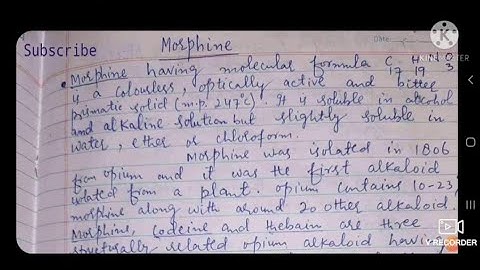 Subscribe
Morphine
Date
KINEMASTER
Morphine having molecular formula C17 H19 N O3
is a colourless, optically active and bitter
prismatic solid (m.p. 247°C). It is soluble in alcohol
and alkaline solution but slightly soluble in
water, ether or chloroform.
Morphine was isolated in 1806
from opium and it was the first alkaloid
isolated from a plant. opium contains 10-23
morphine along with around 20 other alkaloid.
Morphine, codeine and thebain are three
structurally related opium alkaloid having
V-RECORDER